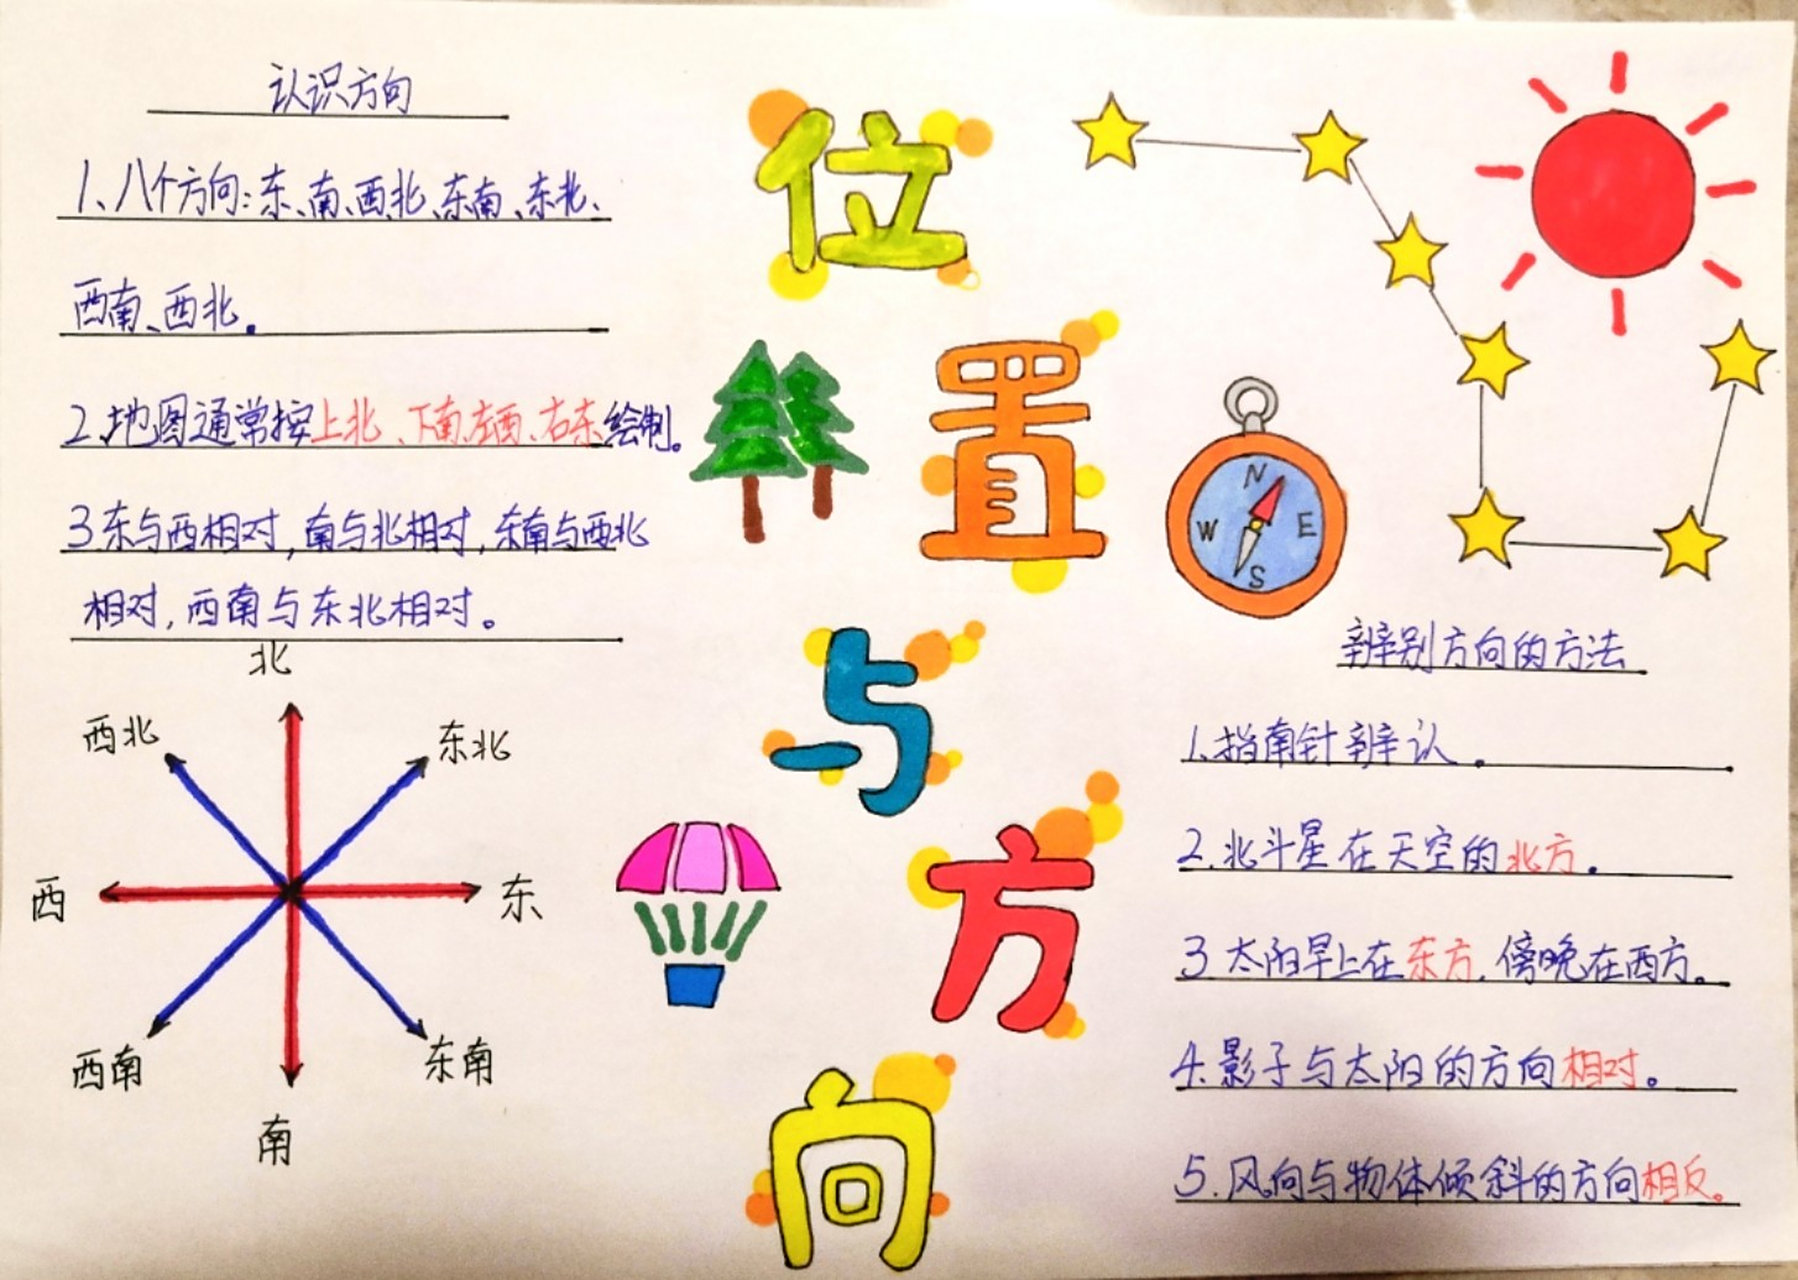 位置与方向
认识方向
1、八个方向:东、南、西、北、东南、东北、
西南、西北。
2、地图通常按上北、下南、左西、右东绘制。
3东与西相对,南与北相对,东南与西北
相对,西南与东北相对。
北
西北
东北
西
东
西南
东南
南
N
W
E
S
辨别方向的方法
1、指南针辨认。
2.北斗星在天空的北方。
3.太阳早上在东方.傍晚在西方。
4.影子与太阳的方向相对。
5.风向与物体倾斜的方向相反。